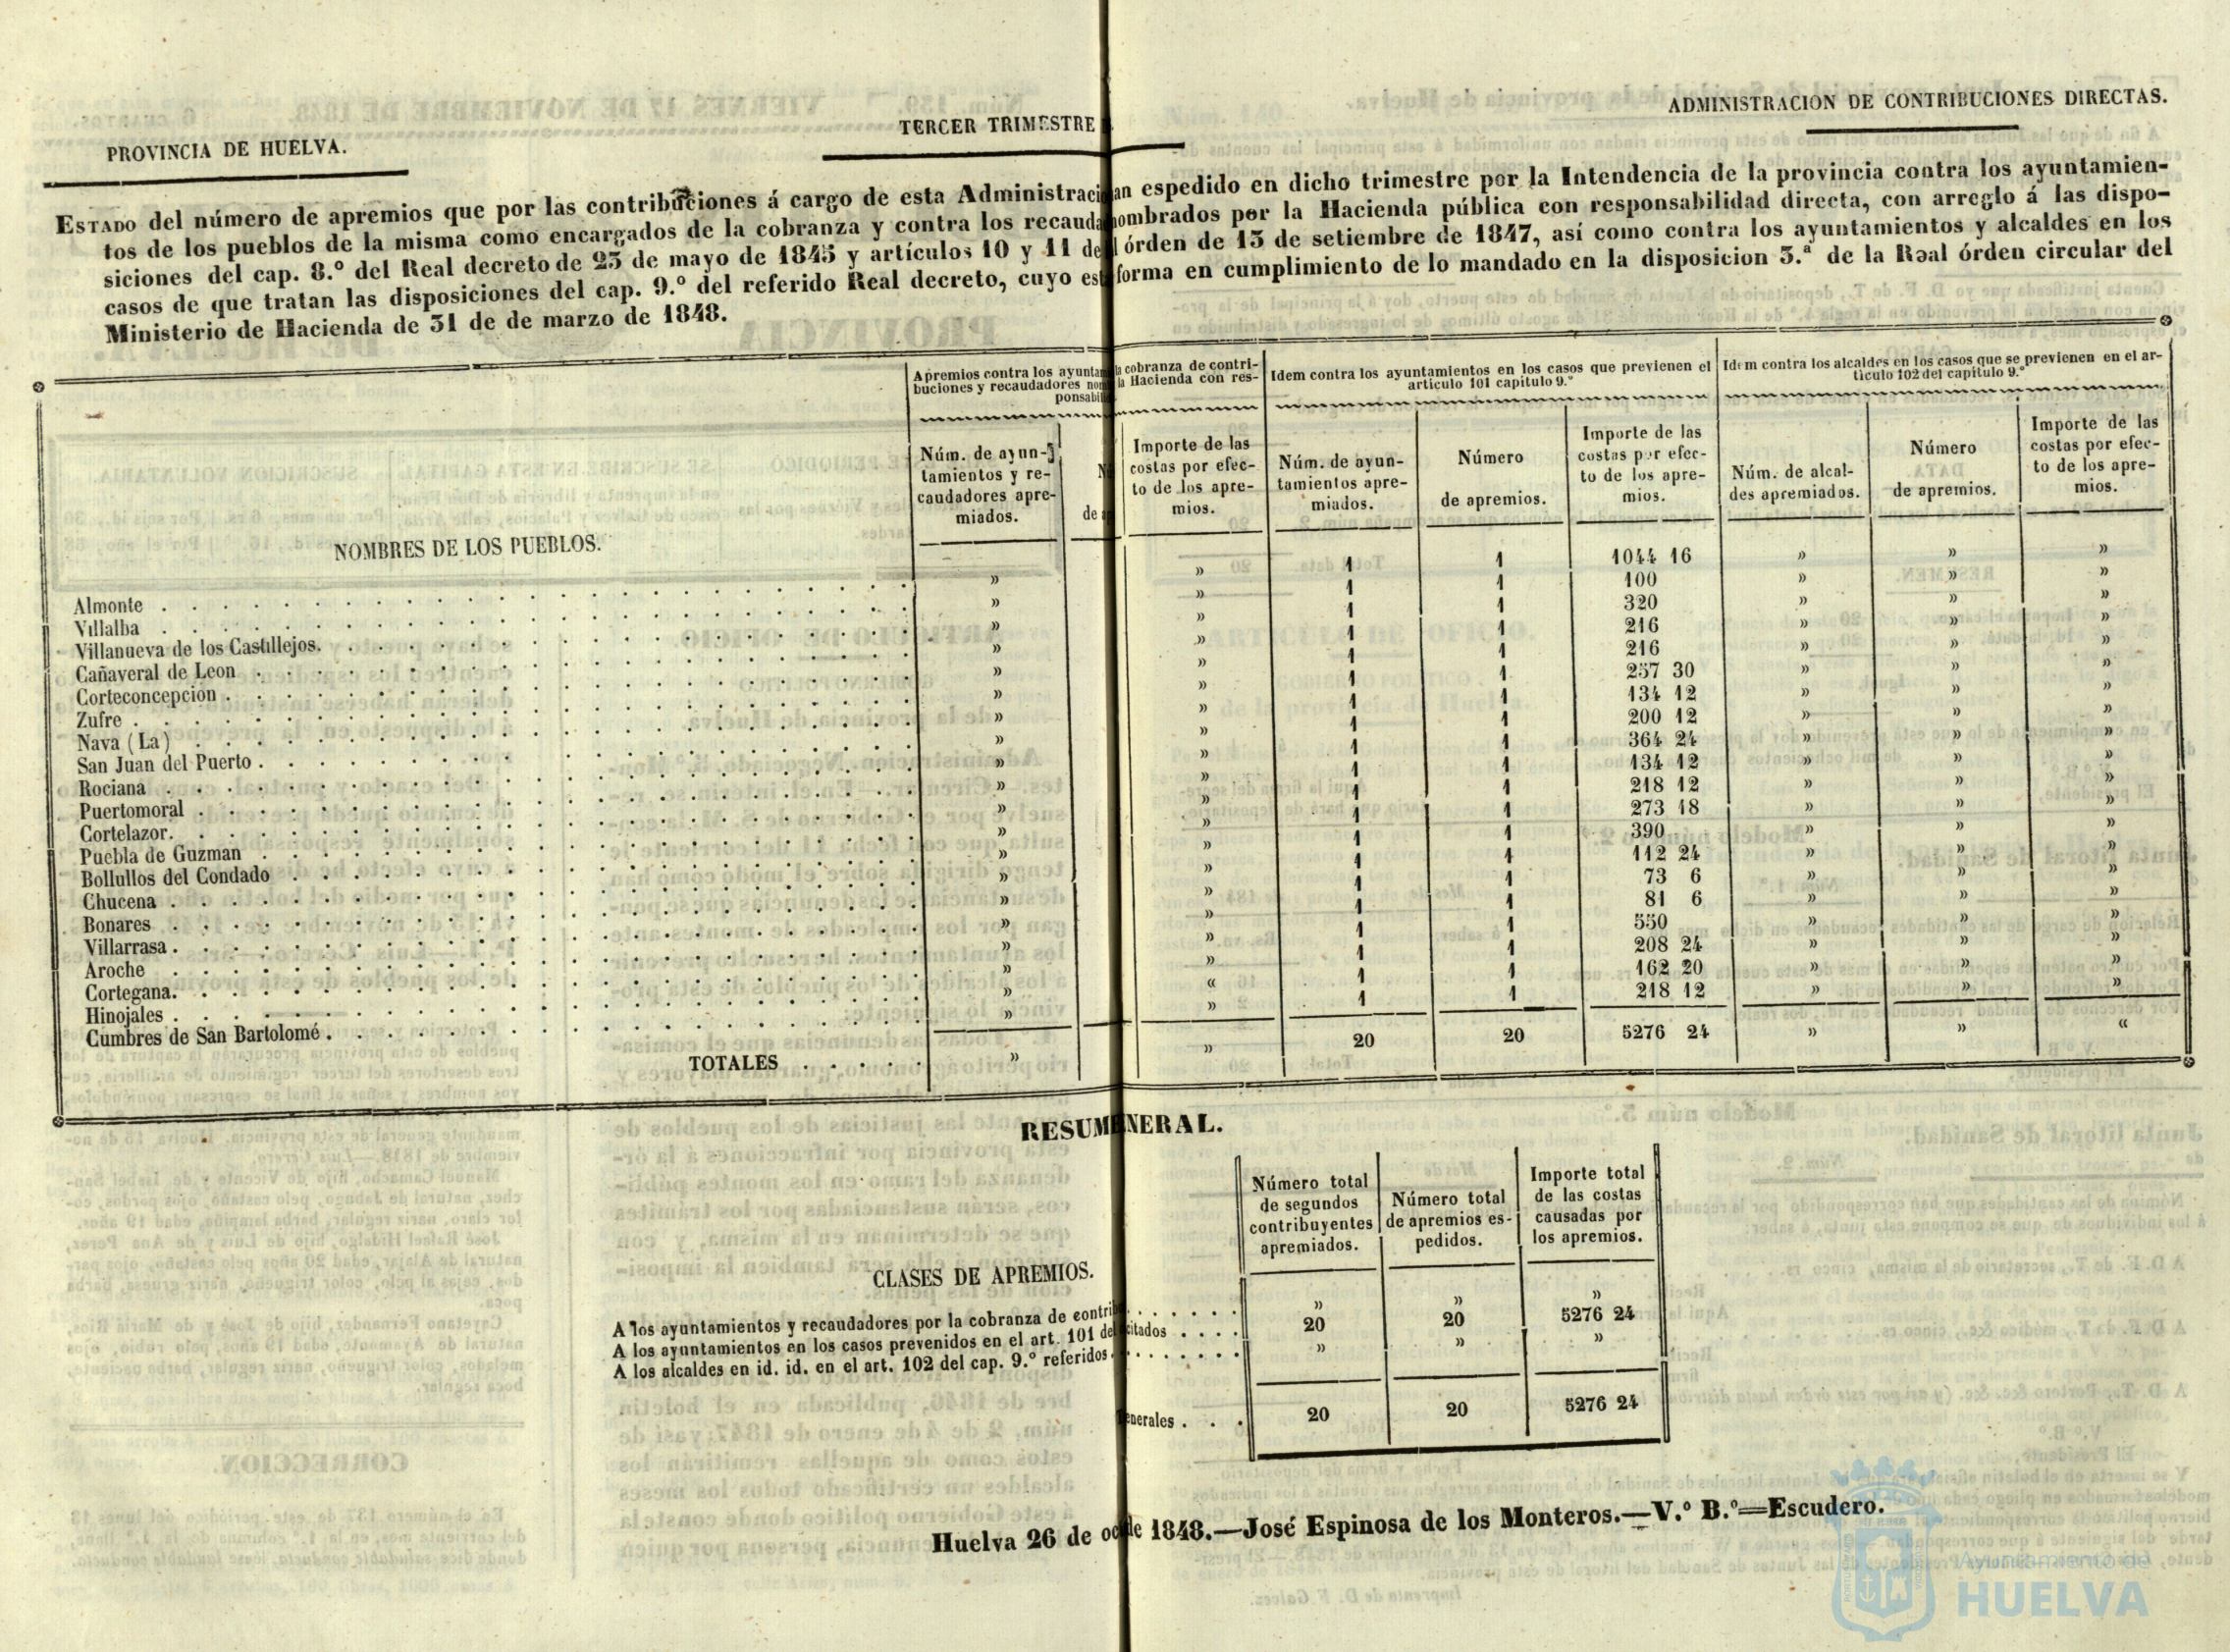 PROVINCIA DE HUELVA.
TERCER TRIMESTRE
ADMINISTRACION DE CONTRIBUCIONES DIRECTAS.
ESTADO del número de apremios que por las contribuciones á cargo de esta Administraci an espedido en dicho trimestre por la Intendencia de la provincia contra los ayuntamien-
tos de los pueblos de la misma como encargados de la cobranza y contra los recauda ombrados por la Hacienda pública con responsabilidad directa, con arreglo á las dispo-
siciones del cap. 8.º del Real decreto de 23 de mayo de 1845 y artículos 10 y 11 de l órden de 13 de setiembre de 1847, así como contra los ayuntamientos y alcaldes en los
casos de que tratan las disposiciones del cap. 9.º del referido Real decreto, cuyo es forma en cumplimiento de lo mandado en la disposicion 3.ª de la Real órden circular del
Ministerio de Hacienda de 31 de de marzo de 1848.
Apremios contra los ayuntam la cobranza de contri-
buciones y recaudadores nom la Hacienda con res-
ponsabili
Idem contra los ayuntamientos en los casos que previenen el
articulo 101 capitulo 9.º
Idem contra los alcaldes en los casos que se previenen en el ar-
ticulo 102 del capitulo 9.º
NOMBRES DE LOS PUEBLOS.
Núm. de ayun-
tamientos y re-
caudadores apre-
miados.
N
de a
Importe de las
costas por efec-
to de los apre-
mios.
Núm. de ayun-
tamientos apre-
miados.
Número
de apremios.
Importe de las
costas por efec-
to de los apre-
mios.
Núm. de alcal-
des apremiados.
Número
de apremios.
Importe de las
costas por efec-
to de los apre-
mios.
Almonte . . . » » 1 1 1044 16 » » »
Villalba . . . » » 1 1 100 » » »
Villanueva de los Castillejos. . . . » » 1 1 320 » » »
Cañaveral de Leon . . . » » 1 1 216 » » »
Corteconcepcion . . . » » 1 1 216 » » »
Zufre . . . » » 1 1 257 30 » » »
Nava (La) . . . » » 1 1 134 12 » » »
San Juan del Puerto . . . » » 1 1 200 12 » » »
Rociana . . . » » 1 1 364 24 » » »
Puertomoral . . . » » 1 1 134 12 » » »
Cortelazor. . . . » » 1 1 218 12 » » »
Puebla de Guzman . . . » » 1 1 273 18 » » »
Bollullos del Condado . . . » » 1 1 390 » » »
Chucena . . . » » 1 1 112 24 » » »
Bonares . . . » » 1 1 73 6 » » »
Villarrasa . . . » » 1 1 81 6 » » »
Aroche . . . » » 1 1 550 » » »
Cortegana. . . . » » 1 1 208 24 » » »
Hinojales . . . » « 1 1 162 20 » » »
Cumbres de San Bartolomé . . . » » 1 1 218 12 » » »
TOTALES . . . . . » » 20 20 5276 24 » » «
RESUM NERAL.
CLASES DE APREMIOS.
Número total
de segundos
contribuyentes
apremiados.
Número total
de apremios es-
pedidos.
Importe total
de las costas
causadas por
los apremios.
A los ayuntamientos y recaudadores por la cobranza de contri . . . . . . » » »
A los ayuntamientos en los casos prevenidos en el art. 101 de citados . . . . 20 20 5276 24
A los alcaldes en id. id. en el art. 102 del cap. 9.º referidos . . . . . . » » »
enerales . . . 20 20 5276 24
Huelva 26 de oc de 1848.—José Espinosa de los Monteros.—V.º B.º=Escudero.
Ayuntamiento de
HUELVA